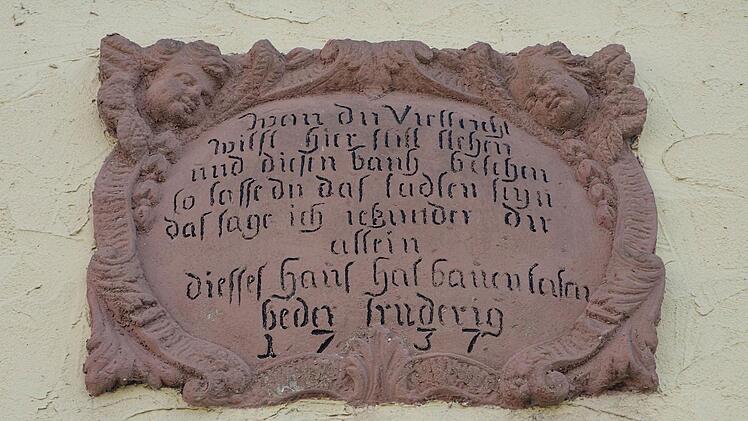 wan du Vielleicht
wilst hier still stehen
und diesen bauh besehen
so lasse du das tadlen seyn
das sage ich ietzunder dir
allein
diesses Haus hat bauen lasen
Peder friderig
1 7 3 7